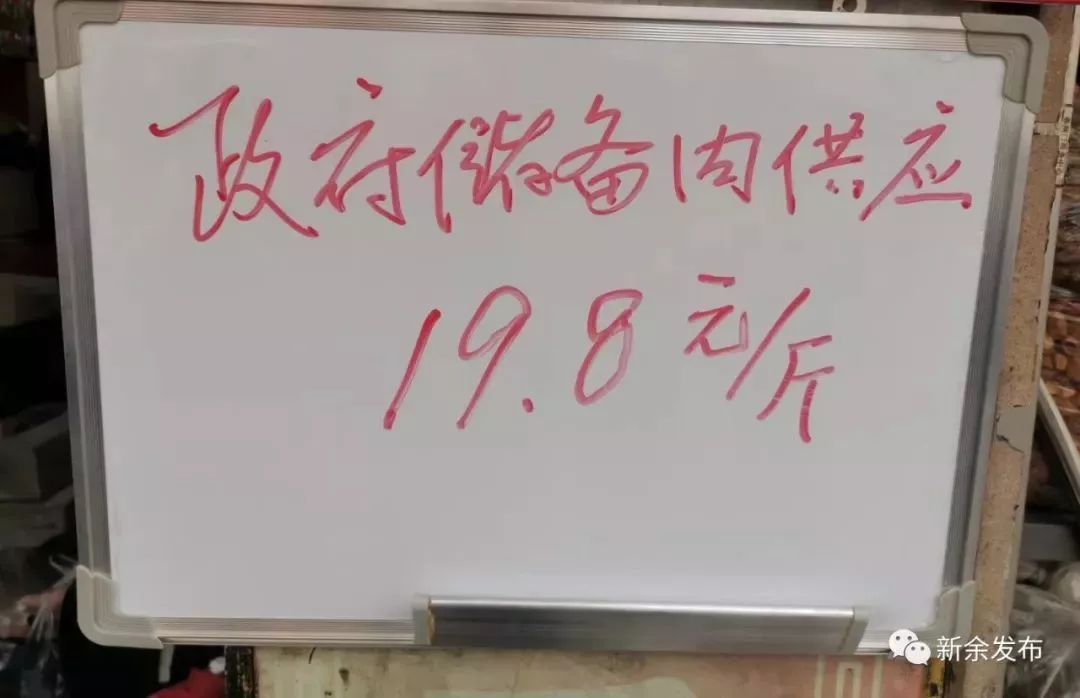 政府储备肉供应
19.8元/斤
新余发布